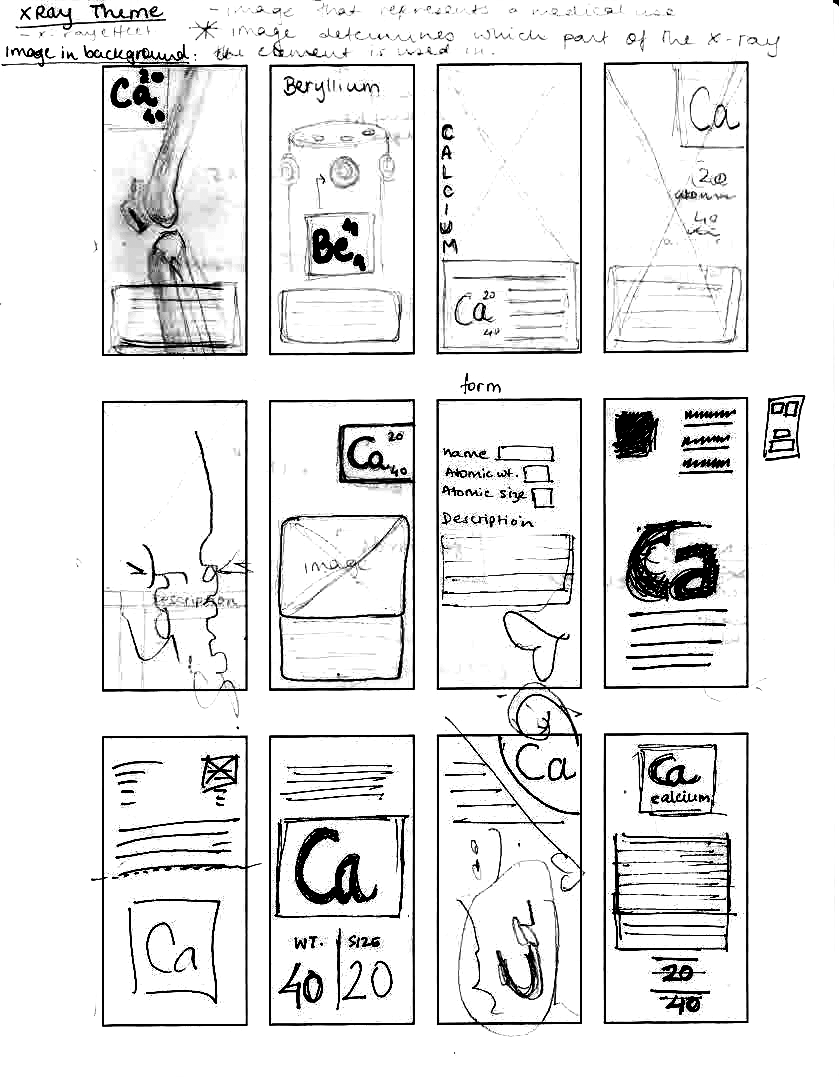 XRay Theme - image that represents a medical use
- x-ray effect * image determines which part of the x-ray
Image in background: the element is used in.
Ca 20 40
Beryllium
Be 4
CALCIUM
Ca 20 40
Ca
20
40
Description
Ca 20 40
image
form
name
Atomic wt.
Atomic size
Description
Ca
Ca
Ca
WT. SIZE
40 20
Ca
Ca
Ca
calcium
20
40